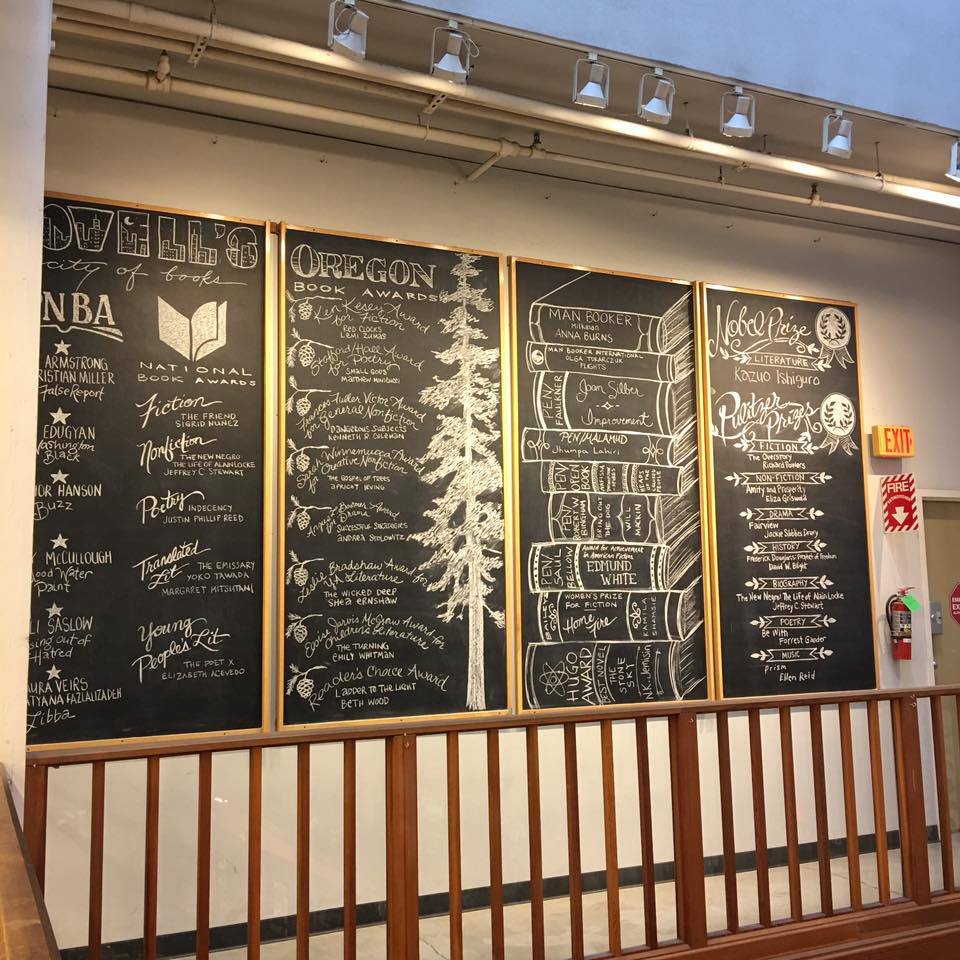 POWELL'S
city of books
NBA
ARMSTRONG
RISTIAN MILLER
False Report
EDUGYAN
Washington
Black
OR HANSON
Buzz
McCULLOUGH
ood Water
Paint
LI SASLOW
ing Out of
Hatred
AURA VEIRS
ATYANA FAZLALIZADEH
Libba
NATIONAL
BOOK AWARDS
Fiction
THE FRIEND
SIGRID NUNEZ
Nonfiction
THE NEW NEGRO:
THE LIFE OF ALAIN LOCKE
JEFFREY C. STEWART
Poetry
INDECENCY
JUSTIN PHILLIP REED
Translated
Lit
THE EMISSARY
YOKO TAWADA
MARGARET MITSUTANI
Young
People's Lit
THE POET X
ELIZABETH ACEVEDO
OREGON
BOOK AWARDS
Ken Kesey Award
for Fiction
RED CLOCKS
LENI ZUMAS
Stafford/Hall Award
for Poetry
SMALL GODS
MATTHEW MINICUCCI
Frances Fuller Victor Award
for General Nonfiction
DANGEROUS SUBJECTS
KENNETH R. COLEMAN
Sarah Winnemucca Award
for Creative Nonfiction
THE GOSPEL OF TREES
APRICOT IRVING
Angus Bowmer Award
for Drama
SUCCESSFUL STRATEGIES
ANDREA STOLOWITZ
Leslie Bradshaw Award for
YA Literature
THE WICKED DEEP
SHEA ERNSHAW
Eloise Jarvis McGraw Award for
Children's Literature
THE TURNING
EMILY WHITMAN
Readers Choice Award
LADDER TO THE LIGHT
BETH WOOD
MAN BOOKER
Milkman
ANNA BURNS
MAN BOOKER INTERNATIONAL
OLGA TOKARCZUK
FLIGHTS
PEN/
FAULKNER
Joan Silber
Improvement
PEN/MALAMUD
Jhumpa Lahiri
PEN
OPEN
BOOK
PEN/
ROBERT W.
BINGHAM
BRING OUT
THE DOG
WILL
MACKIN
PEN/
SAUL
BELLOW
Award for Achievement
in American Fiction
EDMUND
WHITE
BAILEY'S
WOMEN'S PRIZE
FOR FICTION
Home Fire
KAMILA
SHAMSIE
HUGO
AWARD
BEST NOVEL
THE
STONE
SKY
N.K. Jemisin
Nobel Prize
LITERATURE
Kazuo Ishiguro
Pulitzer
Prizes
FICTION
The Overstory
Richard Powers
NON-FICTION
Amity and Prosperity
Eliza Griswold
DRAMA
Fairview
Jackie Sibblies Drury
HISTORY
Frederick Douglass: Prophet of Freedom
David W. Blight
BIOGRAPHY
The New Negro: The Life of Alain Locke
Jeffrey C. Stewart
POETRY
Be With
Forrest Gander
MUSIC
Prism
Ellen Reid
EXIT
FIRE